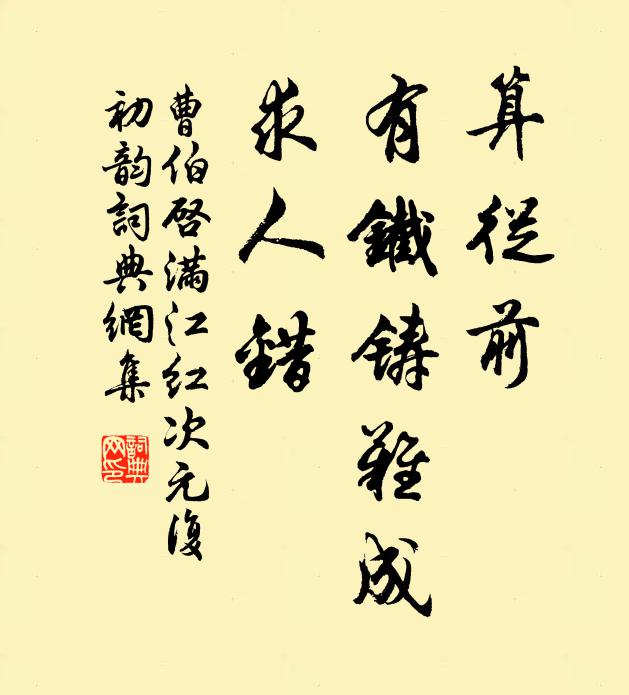 算從前
有鐵鑄難成
求人錯
曹伯啓滿江红次元復
初韵詞典網集
詞典网印